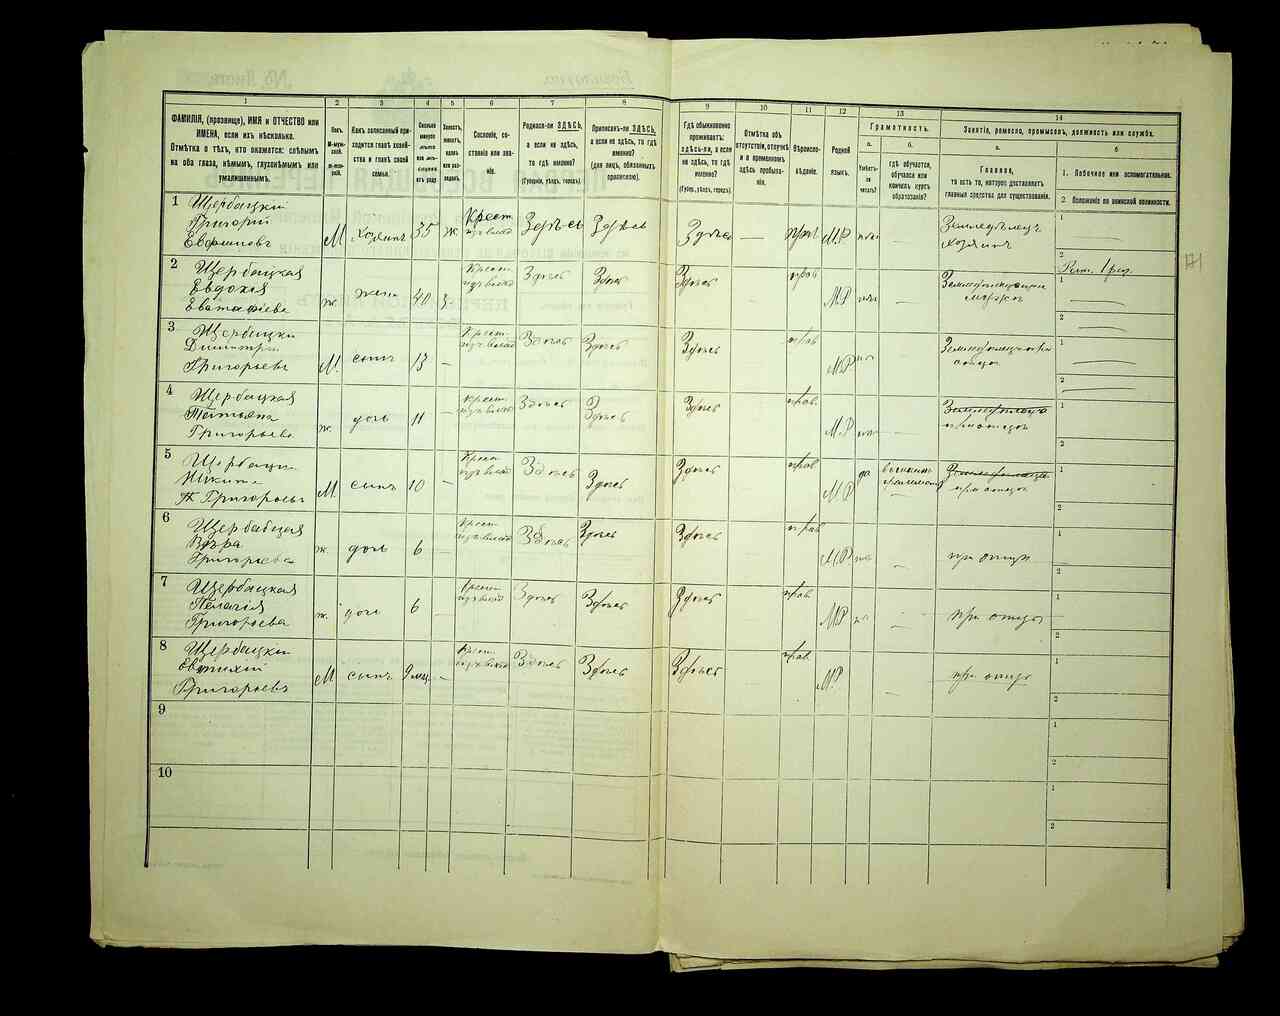 1 2 3 4 5 6 7 8 9 10 11 12 13 14
ФАМИЛІЯ, (прозвище), ИМЯ и ОТЧЕСТВО или
ИМЕНА, если ихъ нѣсколько.
Отмѣтка о тѣхъ, кто окажется: слѣпымъ
на оба глаза, нѣмымъ, глухонѣмымъ или
умалишеннымъ.
Полъ.
М-мужской.
Ж-женскій.
Какъ записанный приходится главѣ хозяйства и главѣ своей
семьи.
Сколько
минуло
лѣтъ или мѣсяцевъ
отъ роду
Холостъ,
женатъ,
вдовъ
или разведенъ.
Сословіе, состояніе или званіе.
Родился-ли ЗДѢСЬ,
а если не здѣсь,
то гдѣ именно?
(Губернія, уѣздъ, городъ).
Приписанъ-ли ЗДѢСЬ,
а если не здѣсь, то гдѣ
именно?
(для лицъ, обязанныхъ
припискою).
Гдѣ обыкновенно
проживаетъ:
здѣсь-ли, а если
не здѣсь, то гдѣ
именно?
(Губер., уѣздъ, городъ).
Отмѣтка объ
отсутствіи, отлучкѣ
и о временномъ
здѣсь пребываніи.
Вѣроисповѣданіе.
Родной
языкъ.
Грамотность.
а.
Умѣетъ-ли
читать?
б.
гдѣ обучается,
обучался или
кончилъ курсъ
образованія?
Занятіе, ремесло, промыселъ, должность или служба.
а.
Главное,
то есть то, которое доставляетъ
главныя средства для существованія.
б
1. Побочное или вспомогательное.
2 Положеніе по воинской повинности.
1 Щербацкій
Григорій
Евфимовъ
М Хозяинъ 35 ж Крест Здѣсь Здѣсь Здѣсь — прав М.Р —
Земледѣлецъ
хозяинъ
1 —
2 Рат. 1 раз.
171
2 Щербацкая
Евдокія
Евстафіева
ж жена 40 з. Крест Здѣсь Здѣсь Здѣсь — прав М.Р —
1 —
2 —
3 Щербацкій
Димитрій
Григорьевъ
М. сынъ 13 — Крест Здѣсь Здѣсь Здѣсь — прав М.Р —
1 —
2 —
4 Щербацкая
Татьяна
Григорьева
ж. дочь 11 — Крест Здѣсь Здѣсь Здѣсь — прав. М.Р —
при отцѣ
1
2
5 Щербацкій
Никита
Григорьевъ
М. сынъ 10 — Крест Здѣсь Здѣсь Здѣсь — прав М.Р да
при отцѣ
1
2
6 Щербацкая
Вѣра
Григорьева
ж. дочь 6 — Крест Здѣсь Здѣсь Здѣсь — прав М.Р —
при отцѣ
1
2
7 Щербацкая
Пелагія
Григорьева
ж. дочь 6 — Крест Здѣсь Здѣсь Здѣсь — прав МР —
при отцѣ
1
2
8 Щербацкій
Евтихій
Григорьевъ
М сынъ 9 мц. — Крест Здѣсь Здѣсь Здѣсь — прав М.Р —
при отцѣ
1
2
9
1
2
10
1
2